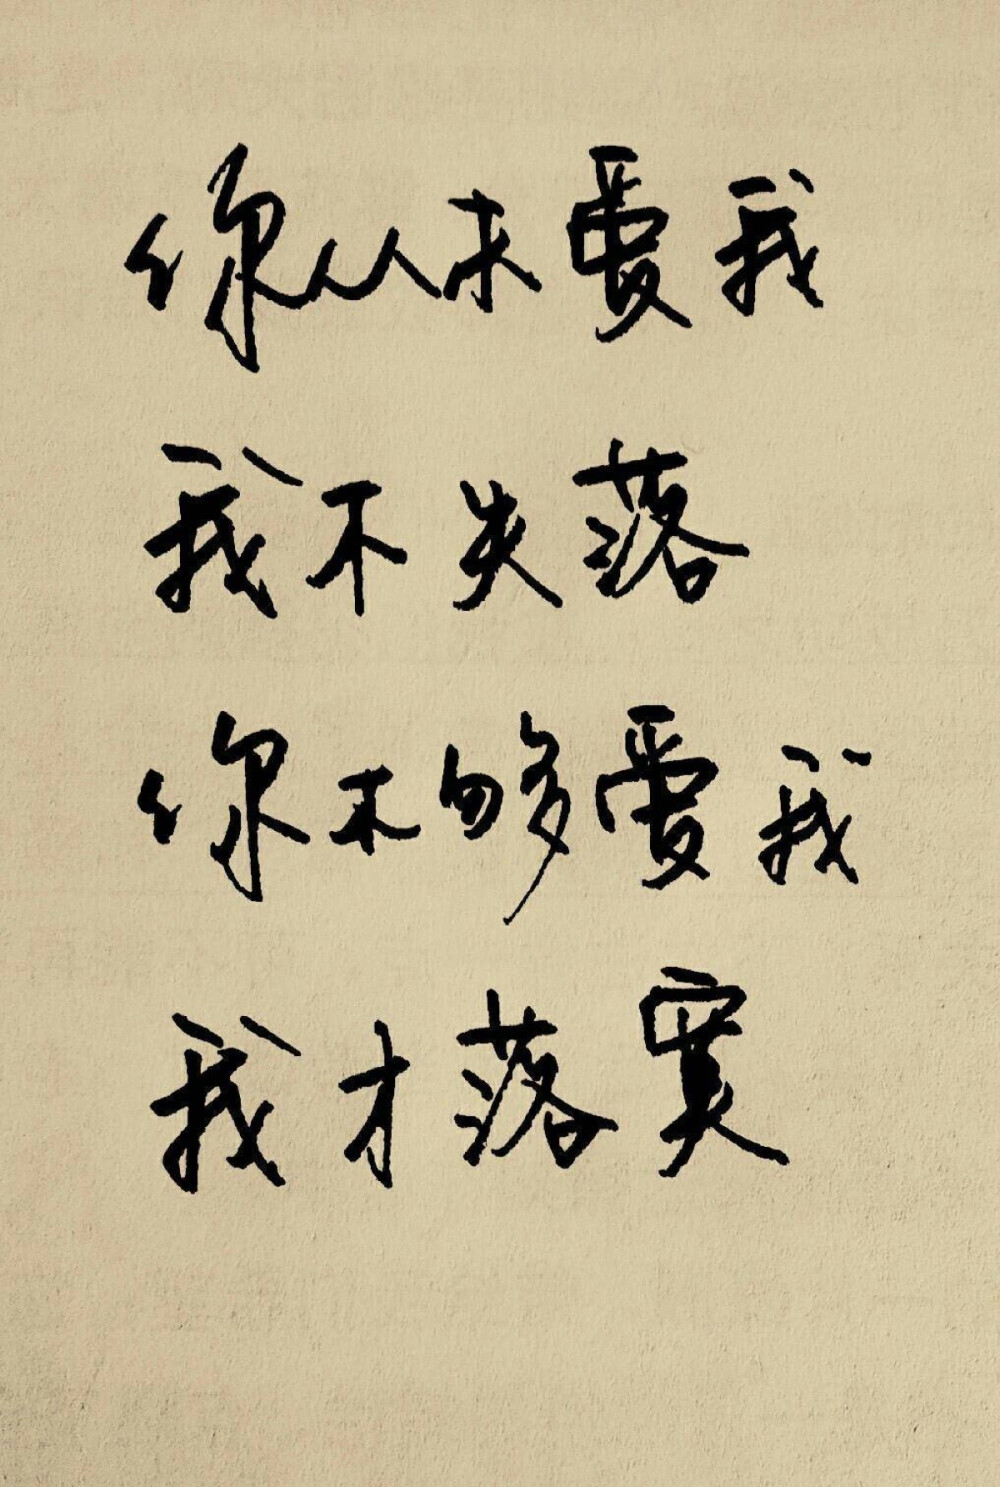 你从未愛我
我不失落
你未够愛我
我才落寞